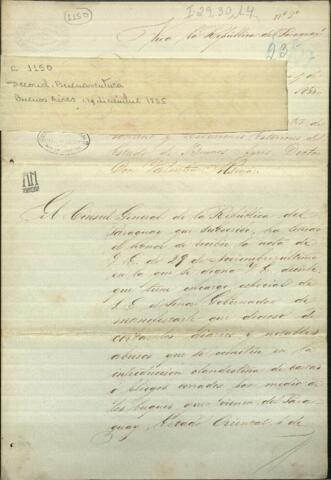 1150
I-29,30,14
Nº 2º
Viva la República del Paraguay
C 1150
Decoud, Buenaventura
Buenos Aires, 19 diciembre 1855
1855
Relaciones Exteriores del
Estado de Buenos Ayres Doctor
Don Valentin Alsina
El Consul General de la República del
Paraguay que subscribe, ha tenido
el honor de recibir la nota de
S.E. de 29 de Noviembre ultimo
en la que se digna S.E. decirle,
que tiene encargo especial de
S.E. el Señor Gobernador de
manifestarle que deseoso de
cortar los diarios y notables
abusos que se cometen en la
introduccion clandestina de cartas
o pliegos cerrados por medio de
los buques que vienen del Para-
guay, Estado Oriental, o de